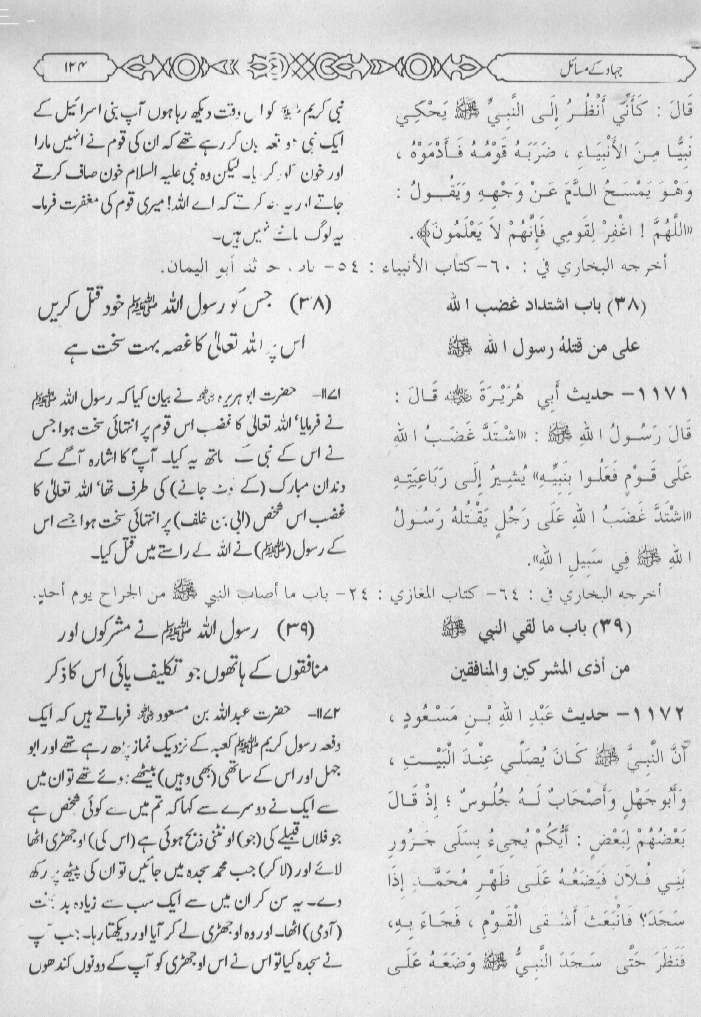 جہاد کے مسائل
۱۲۴
قَالَ : كَأَنِّي أَنْظُرُ إِلَى النَّبِيِّ ﷺ يَحْكِي
نَبِيًّا مِنَ الأَنْبِيَاءِ ، ضَرَبَهُ قَوْمُهُ فَأَدْمَوْهُ ،
وَهُوَ يَمْسَحُ الدَّمَ عَنْ وَجْهِهِ وَيَقُولُ :
«اللَّهُمَّ ! اغْفِرْ لِقَوْمِي فَإِنَّهُمْ لاَ يَعْلَمُونَ».
نبی کریم کو اس وقت دیکھ رہا ہوں آپ بنی اسرائیل کے
ایک نبی کر رہے تھے کہ ان کی قوم نے انہیں مارا
اور خون۔ لیکن وہ نبی علیہ السلام خون صاف کرتے
جاتے اور یہ کرتے کہ اے اللہ! میری قوم کی مغفرت فرما۔
یہ لوگ نہیں ہیں۔
أخرجه البخاري في : ٦٠- كتاب الأنبياء : ٥٤- أبو اليمان.
(٣٨) باب اشتداد غضب الله
على من قتله رسول الله ﷺ
(۳۸) جس کو رسول اللہ ﷺ خود قتل کریں
اس پر اللہ تعالیٰ کا غصہ بہت سخت ہے
١١٧١- حديث أَبِي هُرَيْرَةَ قَالَ :
قَالَ رَسُولُ اللهِ ﷺ : «اشْتَدَّ غَضَبُ اللهِ
عَلَى قَوْمٍ فَعَلُوا بِنَبِيِّهِ» يُشِيرُ إِلَى رَبَاعِيَتِهِ
«اشْتَدَّ غَضَبُ اللهِ عَلَى رَجُلٍ يَقْتُلُهُ رَسُولُ
اللهِ ﷺ فِي سَبِيلِ اللهِ».
۱۱۷۱- حضرت ابو ہریرہ نے بیان کیا کہ رسول اللہ ﷺ
نے فرمایا' اللہ تعالیٰ کا غضب اس قوم پر انتہائی سخت ہوا جس
نے اس کے نبی کے ساتھ یہ کیا۔ آپؐ کا اشارہ آگے کے
دندان مبارک (کے ٹوٹ جانے) کی طرف تھا' اللہ تعالیٰ کا
غضب اس شخص (ابی بن خلف) پر انتہائی سخت ہوا جسے اس
کے رسول (ﷺ) نے اللہ کے راستے میں قتل کیا۔
أخرجه البخاري في : ٦٤- كتاب المغازي : ٢٤- باب ما أصاب النبي ﷺ من الجراح يوم أحدٍ.
(٣٩) باب ما لقي النبي ﷺ
من أذى المشركين والمنافقين
(۳۹) رسول اللہ ﷺ نے مشرکوں اور
منافقوں کے ہاتھوں جو تکلیف پائی اس کا ذکر
١١٧٢- حديث عَبْدِ اللهِ بْنِ مَسْعُودٍ ،
أَنَّ النَّبِيَّ ﷺ كَانَ يُصَلِّي عِنْدَ الْبَيْتِ ،
وَأَبُو جَهْلٍ وَأَصْحَابٌ لَهُ جُلُوسٌ ؛ إِذْ قَالَ
بَعْضُهُمْ لِبَعْضٍ : أَيُّكُمْ يُجِيءُ بِسَلَى جَزُورِ
بَنِي فُلاَنٍ فَيَضَعُهُ عَلَى ظَهْرِ مُحَمَّدٍ إِذَا
سَجَدَ؟ فَانْبَعَثَ أَشْقَى الْقَوْمِ ، فَجَاءَ بِهِ،
فَنَظَرَ حَتَّى سَجَدَ النَّبِيُّ ﷺ وَضَعَهُ عَلَى
۱۱۷۲- حضرت عبداللہ بن مسعود فرماتے ہیں کہ ایک
دفعہ رسول کریم ﷺ کعبہ کے نزدیک نماز پڑھ رہے تھے اور ابو
جہل اور اس کے ساتھی (بھی وہیں) بیٹھے ہوئے تھے تو ان میں
سے ایک نے دوسرے سے کہا کہ تم میں سے کوئی شخص ہے
جو فلاں قبیلے کی (جو) اونٹنی ذبح ہوئی ہے (اس کی) اوجھڑی اٹھا
لائے اور (لا کر) جب محمد سجدہ میں جائیں تو ان کی پیٹھ پر رکھ
دے۔ یہ سن کر ان میں سے ایک سب سے زیادہ بد بخت
(آدمی) اٹھا۔ اور وہ اوجھڑی لے کر آیا اور دیکھتا رہا۔ جب آپ
نے سجدہ کیا تو اس نے اس اوجھڑی کو آپ کے دونوں کندھوں